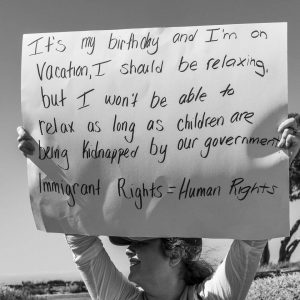 It's my birthday and I'm on
vacation, I should be relaxing.
but I won't be able to
relax as long as children are
being kidnapped by our government
Immigrant Rights = Human Rights